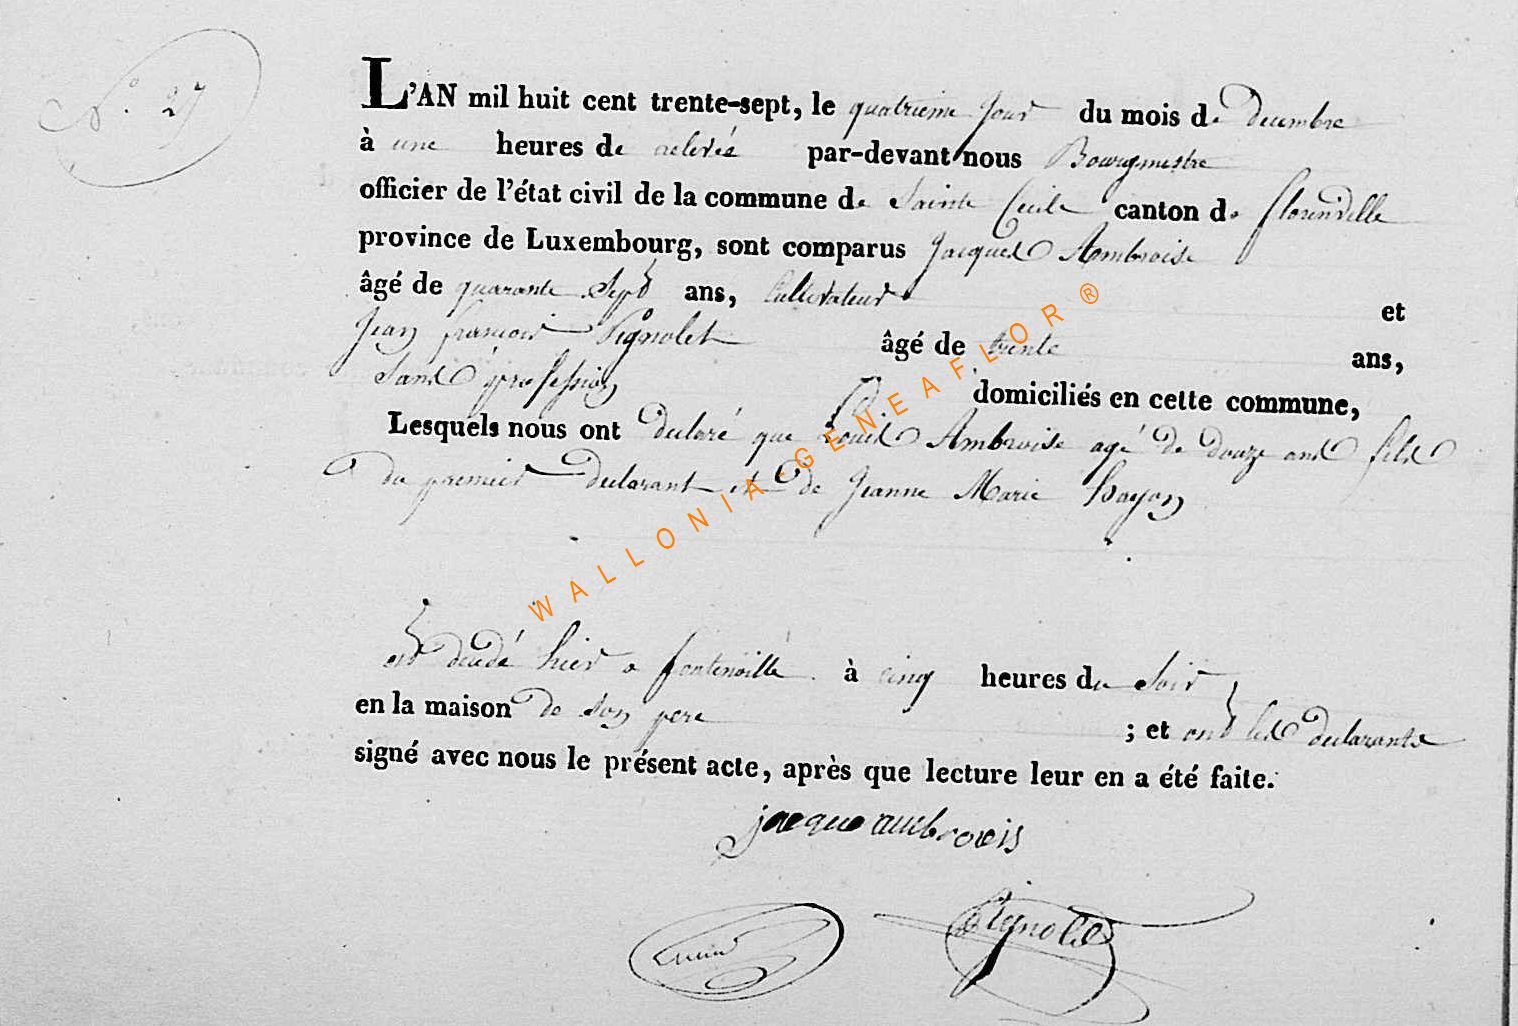 N° 27
L'AN mil huit cent trente-sept, le quatrieme jour du mois de decembre
à une heures de relevés par-devant nous Bourgmestre
officier de l'état civil de la commune de Sainte Cecile canton de florenville
province de Luxembourg, sont comparus Jacques Ambroise
âgé de quarante Sept ans, Cultivateur et
Jean françois Pignolet âgé de trente ans,
Sans profession domiciliés en cette commune,
Lesquels nous ont declaré que Louis Ambroise agé de douze ans fils
du premier declarant et de Jeanne Marie
est decedé hier a fontenoille à cinq heures du Soir
en la maison de son pere ; et ont les declarants
signé avec nous le présent acte, après que lecture leur en a été faite.
jacque ambroois
Pignolet
WALLONIA-GENEAFLOR®